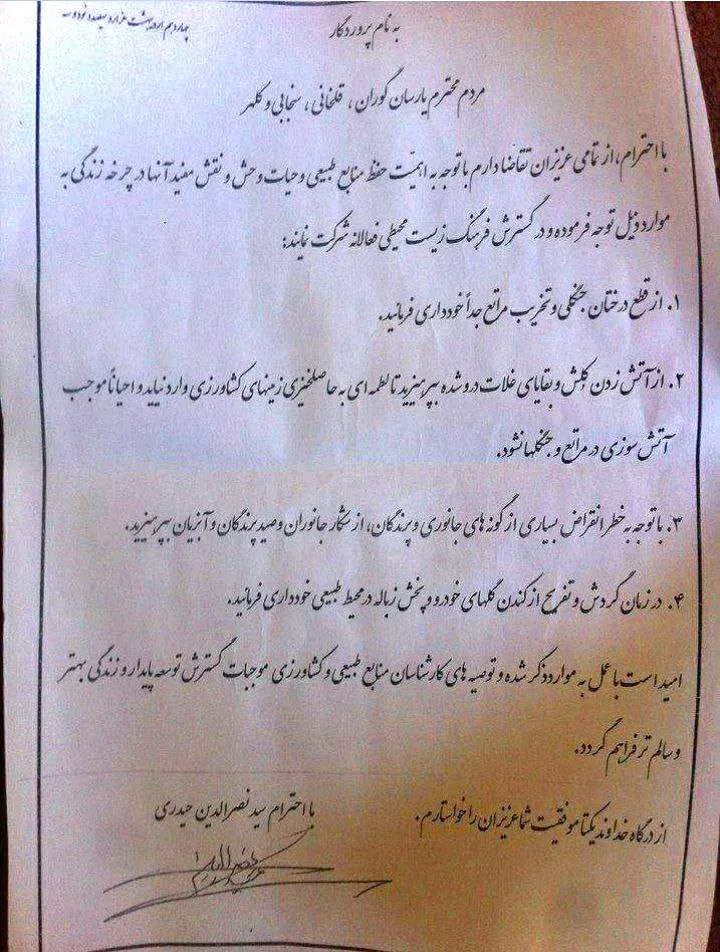 به نام پروردگار
چهاردهم اردیبهشت هزار و سیصد و نود و سه
مردم محترم یارسان گوران، قلخانی، سنجابی و کلهر
با احترام، از تمامی عزیزان تقاضا دارم با توجه به اهمیّت حفظ منابع طبیعی و حیات وحش و نقش مفید آنها در چرخه زندگی به
موارد ذیل توجه فرموده و در گسترش فرهنگ زیست محیطی فعالانه شرکت نمایند:
۱. از قطع درختان جنگلی و تخریب مراتع جداً خودداری فرمائید.
۲. از آتش زدن کلش و بقایای غلات درو شده بپرهیزید تا لطمه ای به حاصلخیزی زمینهای کشاورزی وارد نیاید و احیاناً موجب
آتش سوزی در مراتع و جنگلها نشود.
۳. با توجه به خطر انقراض بسیاری از گونه های جانوری و پرندگان، از شکار جانوران و صید پرندگان و آبزیان بپرهیزید.
۴. در زمان گردش و تفریح از کندن گلهای خودرو و پخش زباله در محیط طبیعی خودداری فرمائید.
امید است با عمل به موارد ذکر شده و توصیه های کارشناسان منابع طبیعی و کشاورزی موجبات گسترش توسعه پایدار و زندگی بهتر
و سالم تر فراهم گردد.
از درگاه خداوند یکتا موفقیت شما عزیزان را خواستارم.
با احترام سید نصرالدین حیدری